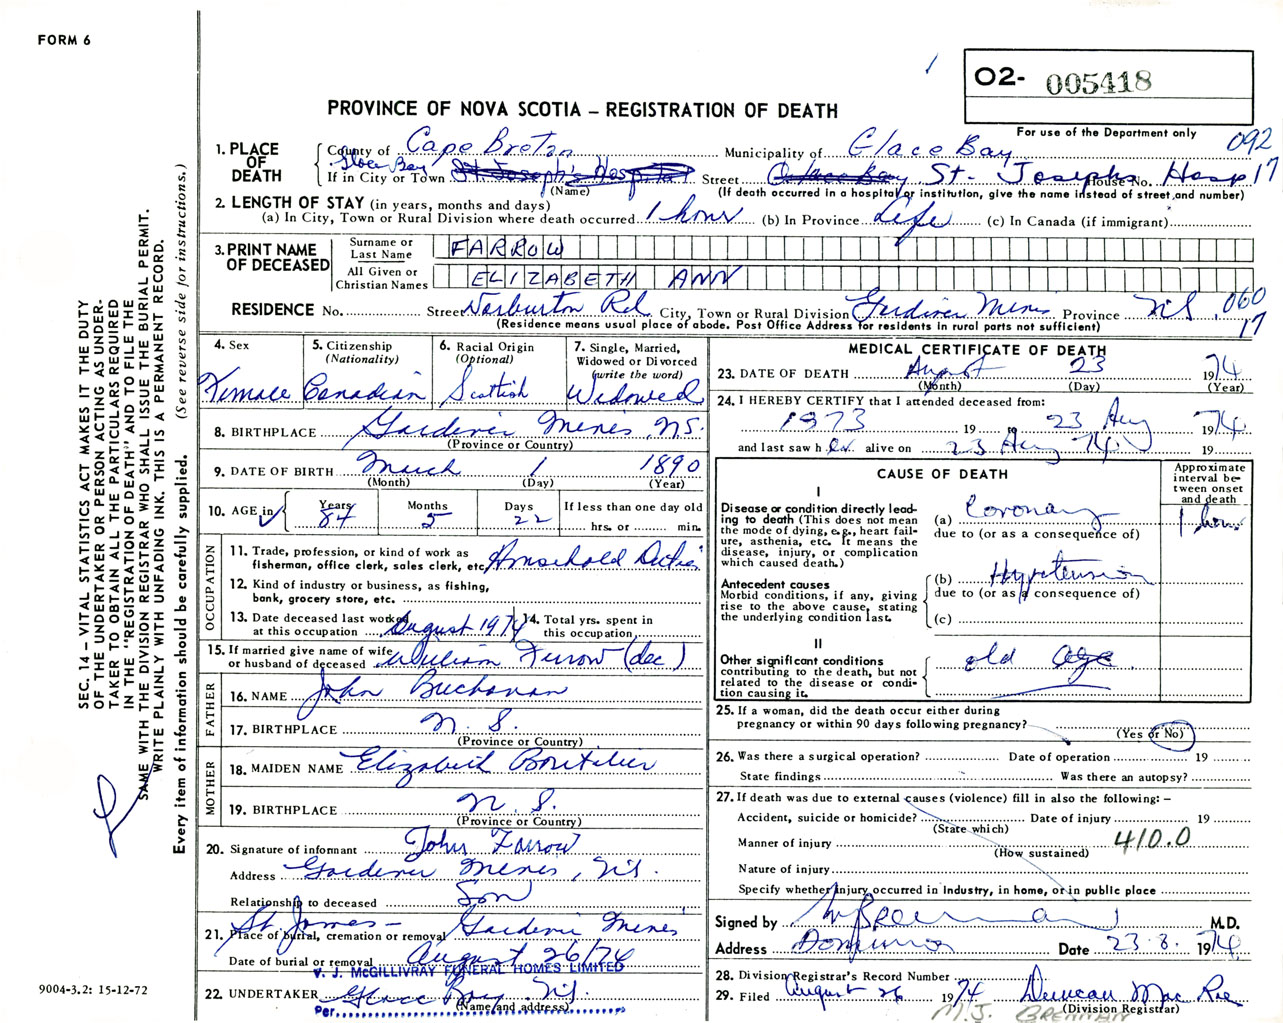 FORM 6
O2- 005418
PROVINCE OF NOVA SCOTIA – REGISTRATION OF DEATH
For use of the Department only
092
17
1. PLACE OF DEATH
County of Cape Breton Municipality of Glace Bay
Glace Bay
If in City or Town St. Joseph's Hospital Street Glace Bay St. Josephs House No. Hosp
(Name) (If death occurred in a hospital or institution, give the name instead of street and number)
2. LENGTH OF STAY (in years, months and days)
(a) In City, Town or Rural Division where death occurred 1 hour (b) In Province Life (c) In Canada (if immigrant)
3. PRINT NAME OF DECEASED
Surname or Last Name FARROW
All Given or Christian Names ELIZABETH ANN
RESIDENCE No. Street Rd City, Town or Rural Division Gardiner Mines Province N.S. 060
17
(Residence means usual place of abode. Post Office Address for residents in rural parts not sufficient)
4. Sex Female
5. Citizenship (Nationality) Canadian
6. Racial Origin (Optional) Scottish
7. Single, Married, Widowed or Divorced (write the word) Widowed
8. BIRTHPLACE Gardiner Mines, N.S.
(Province or Country)
9. DATE OF BIRTH March 1 1890
(Month) (Day) (Year)
10. AGE in Years 84 Months 5 Days 22 If less than one day old hrs. or min.
OCCUPATION
11. Trade, profession, or kind of work as fisherman, office clerk, sales clerk, etc. Household Duties
12. Kind of industry or business, as fishing, bank, grocery store, etc.
13. Date deceased last worked at this occupation August 1974
14. Total yrs. spent in this occupation
15. If married give name of wife or husband of deceased William Farrow (dec)
FATHER
16. NAME John Buchanan
17. BIRTHPLACE N. S.
(Province or Country)
MOTHER
18. MAIDEN NAME Elizabeth Boutilier
19. BIRTHPLACE N. S.
(Province or Country)
20. Signature of informant John Farrow
Address Gardiner Mines, N.S.
Relationship to deceased Son
21. Place of burial, cremation or removal St. James – Gardiner Mines
Date of burial or removal August 26/74
V. J. McGILLIVRAY FUNERAL HOMES LIMITED
22. UNDERTAKER Glace Bay, N.S.
(Name and address)
Per
MEDICAL CERTIFICATE OF DEATH
23. DATE OF DEATH August 23 1974
(Month) (Day) (Year)
24. I HEREBY CERTIFY that I attended deceased from:
1973 19 23 Aug 1974
and last saw h er alive on 23 Aug 74 19
CAUSE OF DEATH
Approximate interval between onset and death
I
Disease or condition directly leading to death (This does not mean the mode of dying, e.g., heart failure, asthenia, etc. It means the disease, injury, or complication which caused death.)
(a) Coronary 1 hour
due to (or as a consequence of)
Antecedent causes
Morbid conditions, if any, giving rise to the above cause, stating the underlying condition last.
(b) Hypertension
due to (or as a consequence of)
(c)
II
Other significant conditions contributing to the death, but not related to the disease or condition causing it.
old age
25. If a woman, did the death occur either during pregnancy or within 90 days following pregnancy?
(Yes or No)
26. Was there a surgical operation? Date of operation 19
State findings Was there an autopsy?
27. If death was due to external causes (violence) fill in also the following: –
Accident, suicide or homicide? Date of injury 19
(State which)
Manner of injury 410.0
(How sustained)
Nature of injury
Specify whether injury occurred in industry, in home, or in public place
Signed by M.D.
Address Dominion Date 23.8. 1974
28. Division Registrar's Record Number
29. Filed August 26 1974 Duncan Mac Rae
(Division Registrar)
M.J. BRENNAN
SEC. 14 – VITAL STATISTICS ACT MAKES IT THE DUTY
OF THE UNDERTAKER OR PERSON ACTING AS UNDER-
TAKER TO OBTAIN ALL THE PARTICULARS REQUIRED
IN THE "REGISTRATION OF DEATH" AND TO FILE THE
SAME WITH THE DIVISION REGISTRAR WHO SHALL ISSUE THE BURIAL PERMIT.
WRITE PLAINLY WITH UNFADING INK. THIS IS A PERMANENT RECORD.
Every item of information should be carefully supplied. (See reverse side for instructions.)
9004-3.2: 15-12-72